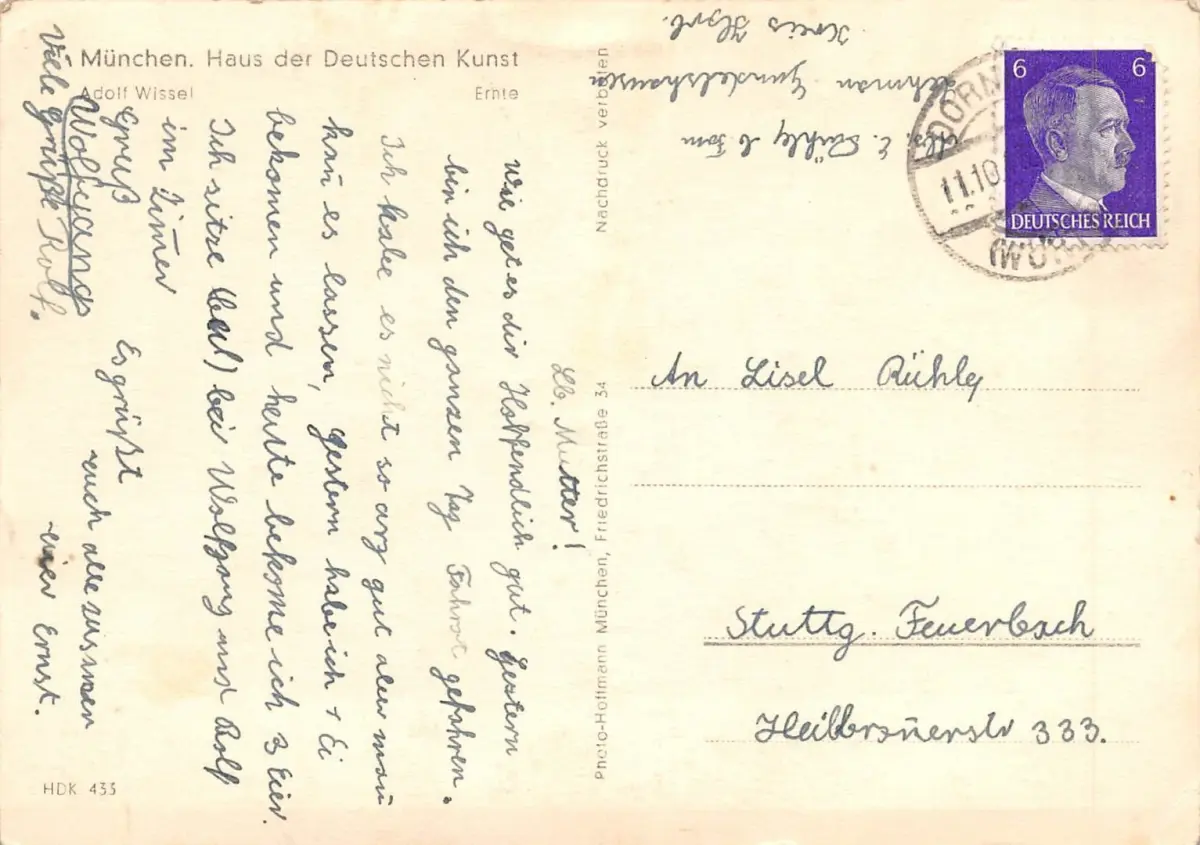 München. Haus der Deutschen Kunst
Adolf Wissel
Ernte
Lb. Mutter!
Wie get es dir Hoffendlich gut. Gestern
bin ich den ganzen Tag Fahrat gefahren.
Ich habe es nicht so arg gut aber mañ
kañ es lassen, gestern habe ich 1 Ei
bekomen und heute bekome ich 3 Eier.
Ich sitze bei Wolfgang und Rolf
im Zimer
Es grüßt
euch alle zusamen
euer Ernst.
Gruß
Wolfgang
Viele Grüße Rolf.
HDK 433
Photo-Hoffmann München, Friedrichstraße 34
Nachdruck verboten
Abs. E. Rühlg b Fam
Lehman Gundelshausen
Kreis Horb.
DORN
11.10
(WÜR
6 6
DEUTSCHES REICH
An Lisel Rühlg
Stuttg. Feuerbach
Heilbroñerstr 333.